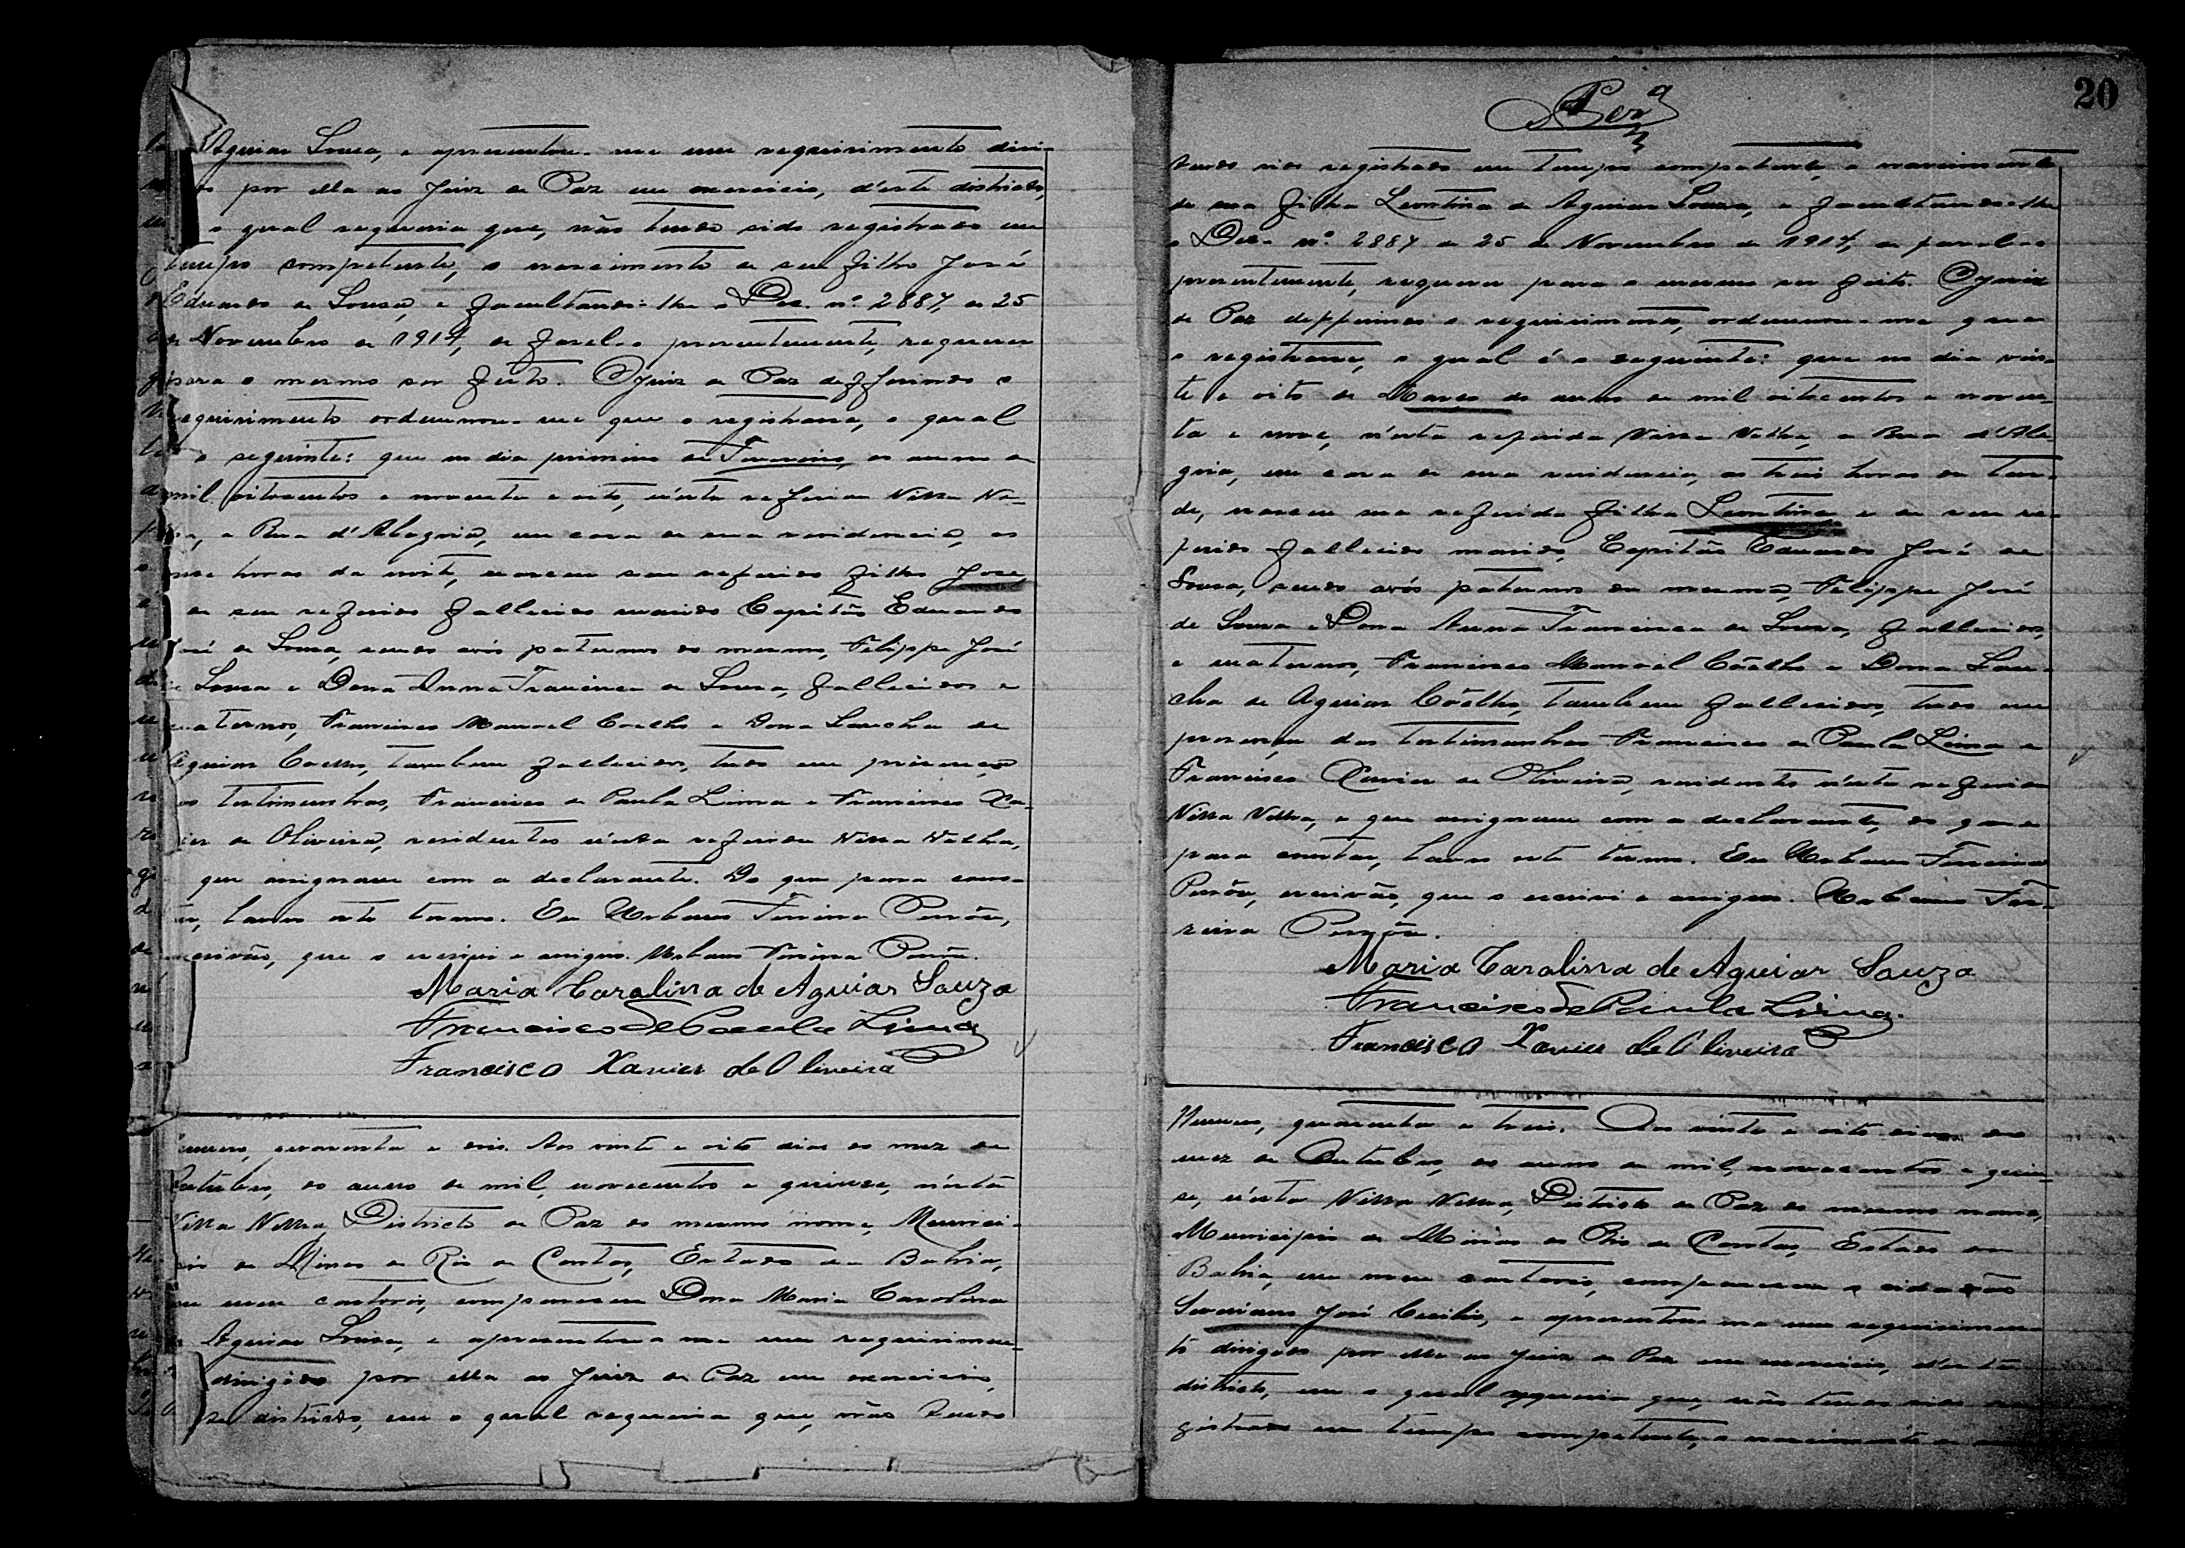 Aguiar Sousa, e apresentou-me um requerimento diri-
por ella ao Juiz de Paz em exercicio, d'este districto,
o qual requeria que, não tendo sido registrado em
tempo competente, o nascimento de seu filho José
Eduardo de Sousa, e facultando-lhe o Dec. nº 2887, de 25
de Novembro de 1914, de fazel-o presentemente, requeria
para o mesmo ser feito. O Juiz de Paz defferindo o
requerimento ordenou-me que o registrasse, o qual
é o seguinte: que no dia primeiro de Fevereiro, do anno de
mil oitocentos e noventa e oito, n'esta referida Villa Ve-
a Rua d'Alegria, em casa de sua residencia, as
horas da noite, nasceu seu referido filho José,
e de seu referido fallecido marido Capitão Eduardo
José de Sousa, sendo avós paternos do mesmo, Felippe José
de Sousa e Dona Anna Francisca de Sousa, fallecidos e
maternos, Francisco Manoel Coelho e Dona Laucha de
Aguiar Coelho, tambem fallecidos, tudo em presença
das testimunhas, Francisco de Paula Lima e Francisco Xa-
vier de Oliveira, residentes n'esta referida Villa Velha,
que assignaram com a declarante. Do que para cons-
tar, lavro este termo. Eu Urbano Ferreira
escrivão, que o escrevi e assigno. Urbano Ferreira
Maria Carolina de Aguiar Souza
Francisco de Paula Lima
Francisco Xavier de Oliveira
Numero, quarenta e dois. Aos vinte e oito dias do mez de
Outubro, do anno de mil, novecentos e quinze, n'esta
Villa Velha, Districto de Paz do mesmo nome, Munici-
pio de Minas do Rio de Contas, Estado da Bahia,
em meu cartorio, compareceu Dona Maria Carolina
de Aguiar Sousa, e apresentou-me um requerimen-
dirigido por ella ao Juiz de Paz em exercicio,
districto, em o qual requeria que, não tendo
20
tendo sido registrado em tempo competente, o nascimento
de sua filha Leontina de Aguiar Sousa, e facultando-lhe
o Dec. nº 2887 de 25 de Novembro de 1914, de fazel-o
presentemente, requeria para o mesmo ser feito. O Juiz
de Paz defferindo o requerimento, ordenou-me que
o registrasse, o qual é o seguinte: que no dia vin-
te e oito de Março do anno de mil oitocentos e noven-
ta e nove, n'esta referida Villa Velha, a Rua d'Ale-
gria, em casa de sua residencia, as treis horas da tar-
de, nasceu sua referida filha Leontina e de seu re-
ferido fallecido marido, Capitão Eduardo José de
Sousa, sendo avós paternos da mesma, Felippe José
de Sousa e Dona Anna Francisca de Sousa, fallecidos,
e maternos, Francisco Manoel Coêlho e Dona Lau-
cha de Aguiar Coêlho, tambem fallecidos, tudo em
presença das testimunhas Francisco de Paula Lima e
Francisco Xavier de Oliveira, residentes n'esta referida
Villa Velha, e que assignaram com a declarante, do que
para constar, lavro este termo. Eu Urbano Ferreira
escrivão, que o escrevi e assigno. Urbano Fer-
reira
Maria Carolina de Aguiar Souza
Francisco de Paula Lima.
Francisco Xavier de Oliveira
Numero, quarenta e treis. Aos vinte e oito dias do
mez de Outubro, do anno de mil, novecentos e quin-
se, n'esta Villa Velha, Districto de Paz do mesmo nome,
Municipio de Minas do Rio de Contas, Estado da
Bahia, em meu cartorio, compareceu o cidadão
José Cecilio, e apresentou-me um requerimen-
to dirigido por elle ao Juiz de Paz em exercicio, d'este
districto, em o qual requeria que, não tendo sido re-
gistrado em tempo competente, o nascimento de